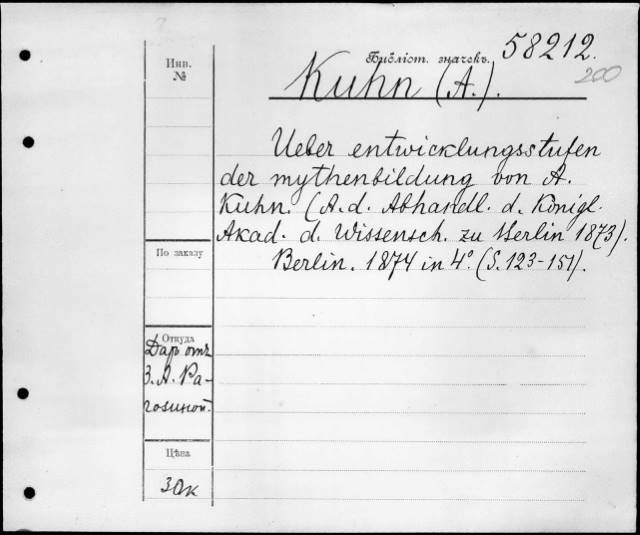 Инв.
№
Библіот. значекъ. 58212.
200
Kuhn (A.).
Ueber entwicklungsstufen
der mythenbildung von A.
Kuhn. (A. d. Abhandl. d. Königl.
Akad. d. Wissensch. zu Berlin 1873).
Berlin. 1874 in 4º. (S. 123-151).
По заказу
Откуда
Даръ отъ
З. А. Ра-
гозиной.
Цѣна
30к